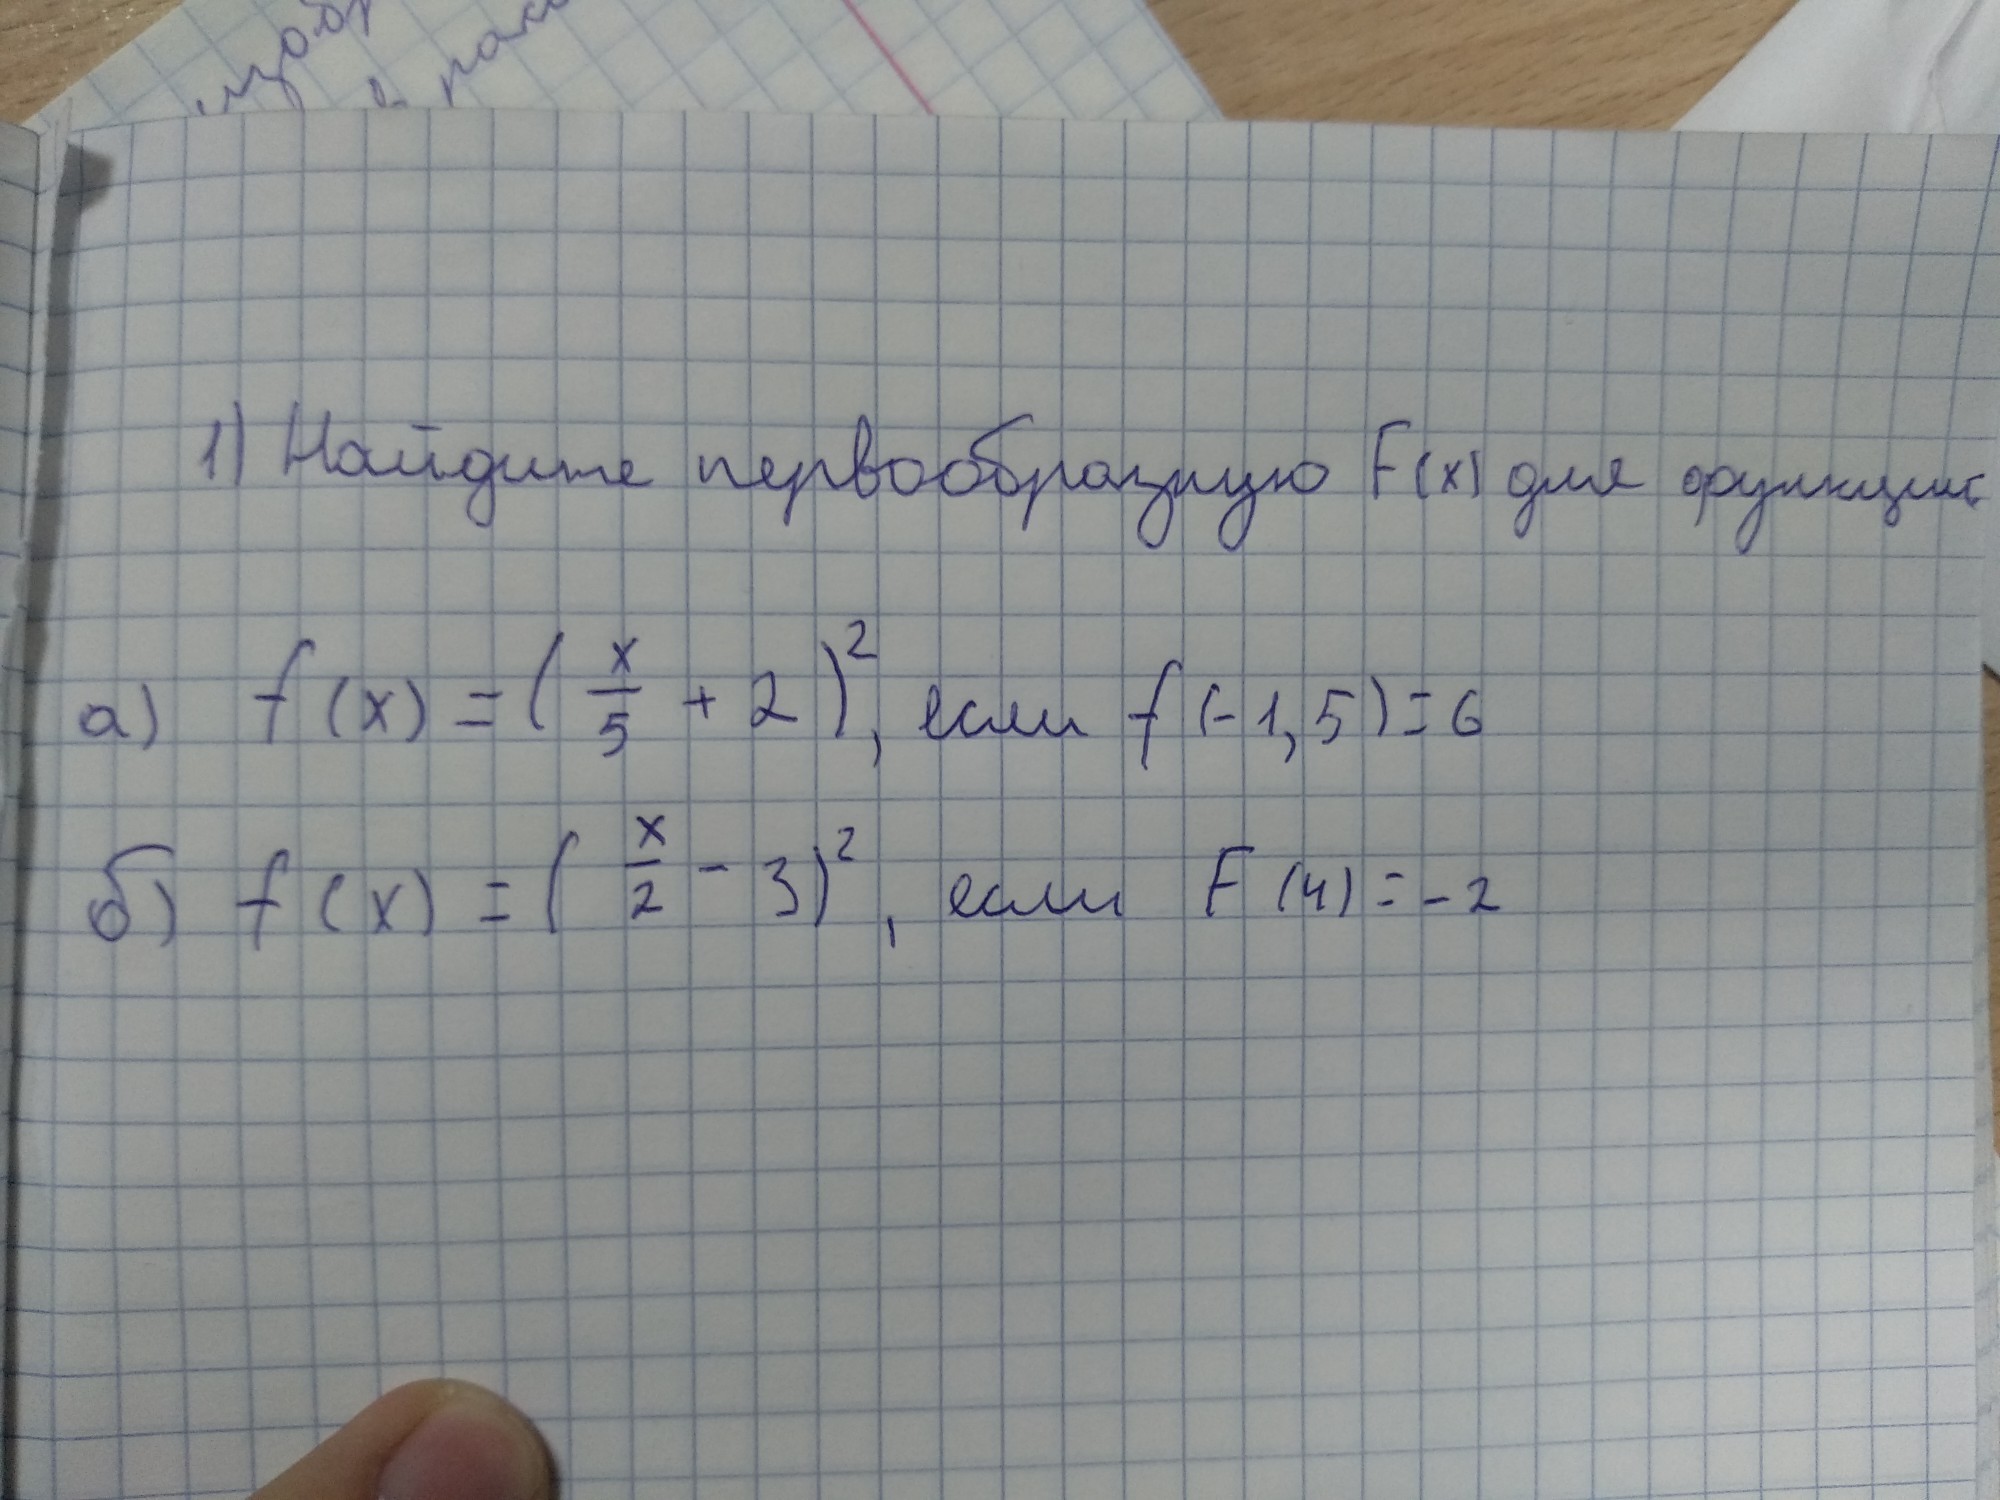 1) Найдите первообразную F(x) для функции
а) f(x) = (x/5 + 2)², если f(-1,5) = 6
б) f(x) = (x/2 - 3)², если F(4) = -2